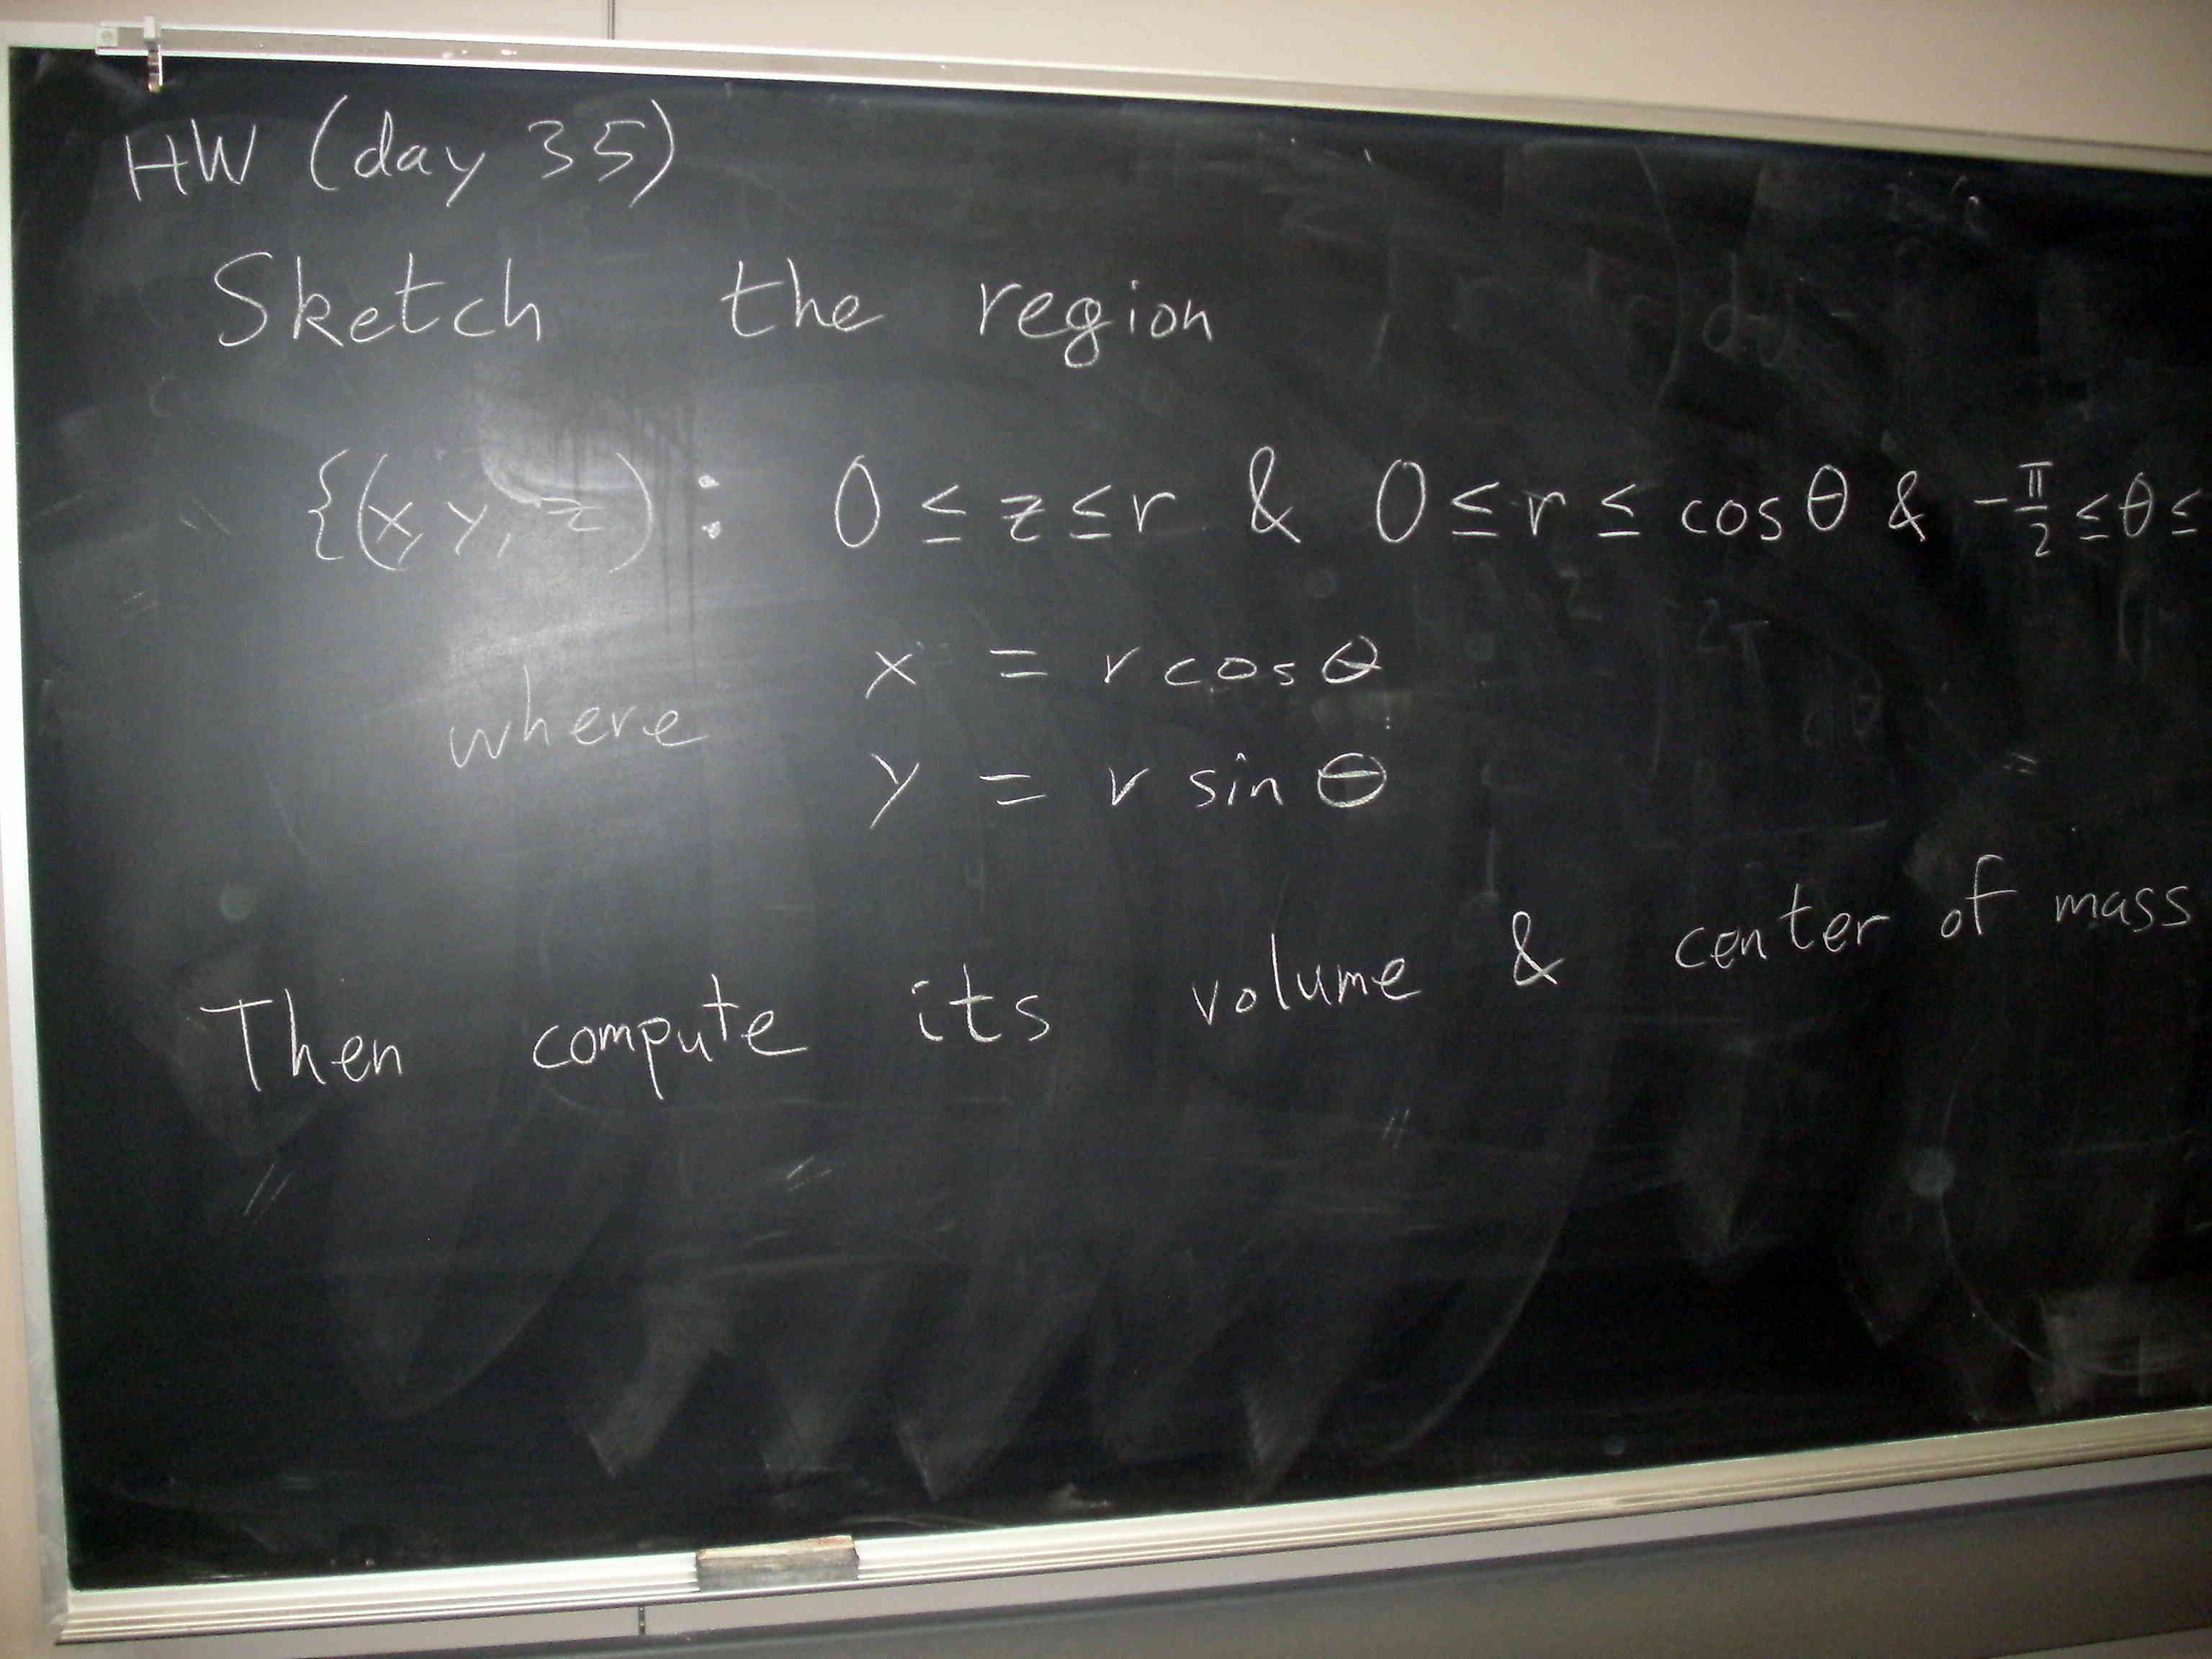 HW (day 35)
Sketch the region
{(x, y, z) : 0 ≤ z ≤ r & 0 ≤ r ≤ cos θ & -π/2 ≤ θ ≤
x = r cos θ
where
y = r sin θ
Then compute its volume & center of mass